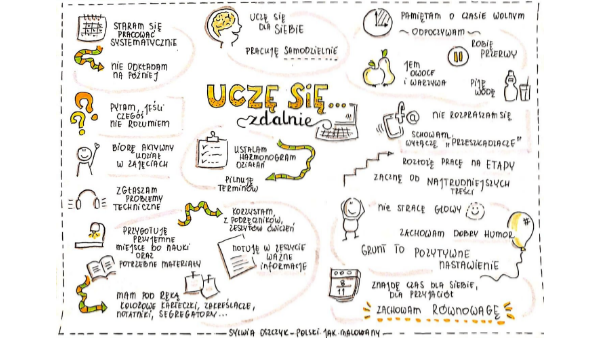 STARAM SIĘ
PRACOWAĆ
SYSTEMATYCZNIE
NIE ODKŁADAM
NA PÓŹNIEJ
PYTAM, JEŚLI
CZEGOŚ
NIE ROZUMIEM
BIORĘ AKTYWNY
UDZIAŁ
W ZAJĘCIACH
ZGŁASZAM
PROBLEMY
TECHNICZNE
PRZYGOTUJĘ
PRZYJEMNE
MIEJSCE DO NAUKI
ORAZ
POTRZEBNE MATERIAŁY
MAM POD RĘKĄ
KOLOROWE KARTECZKI, ZAKREŚLACZE,
NOTATNIKI, SEGREGATORY...
UCZĘ SIĘ
DLA SIEBIE
PRACUJĘ SAMODZIELNIE
UCZĘ SIĘ...
zdalnie
USTALAM
HARMONOGRAM
DZIAŁAŃ
PILNUJĘ
TERMINÓW
KORZYSTAM
Z PODRĘCZNIKÓW,
ZESZYTÓW ĆWICZEŃ
NOTUJĘ W ZESZYCIE
WAŻNE
INFORMACJE
PAMIĘTAM O CZASIE WOLNYM
~ ODPOCZYWAM ~
ROBIĘ
PRZERWY
JEM
OWOCE
I WARZYWA
PIJĘ
WODĘ
NIE ROZPRASZAM SIĘ
SCHOWAM,
WYŁĄCZĘ „PRZESZKADZACZE”
ROZŁOŻĘ PRACĘ NA ETAPY
ZACZNĘ OD NAJTRUDNIEJSZYCH
TREŚCI
NIE STRACĘ GŁOWY
ZACHOWAM DOBRY HUMOR
GRUNT TO POZYTYWNE
NASTAWIENIE
ZNAJDĘ CZAS DLA SIEBIE,
DLA PRZYJACIÓŁ
ZACHOWAM RÓWNOWAGĘ
SYLWIA OSZCZYK - POLSKI JAK MALOWANY